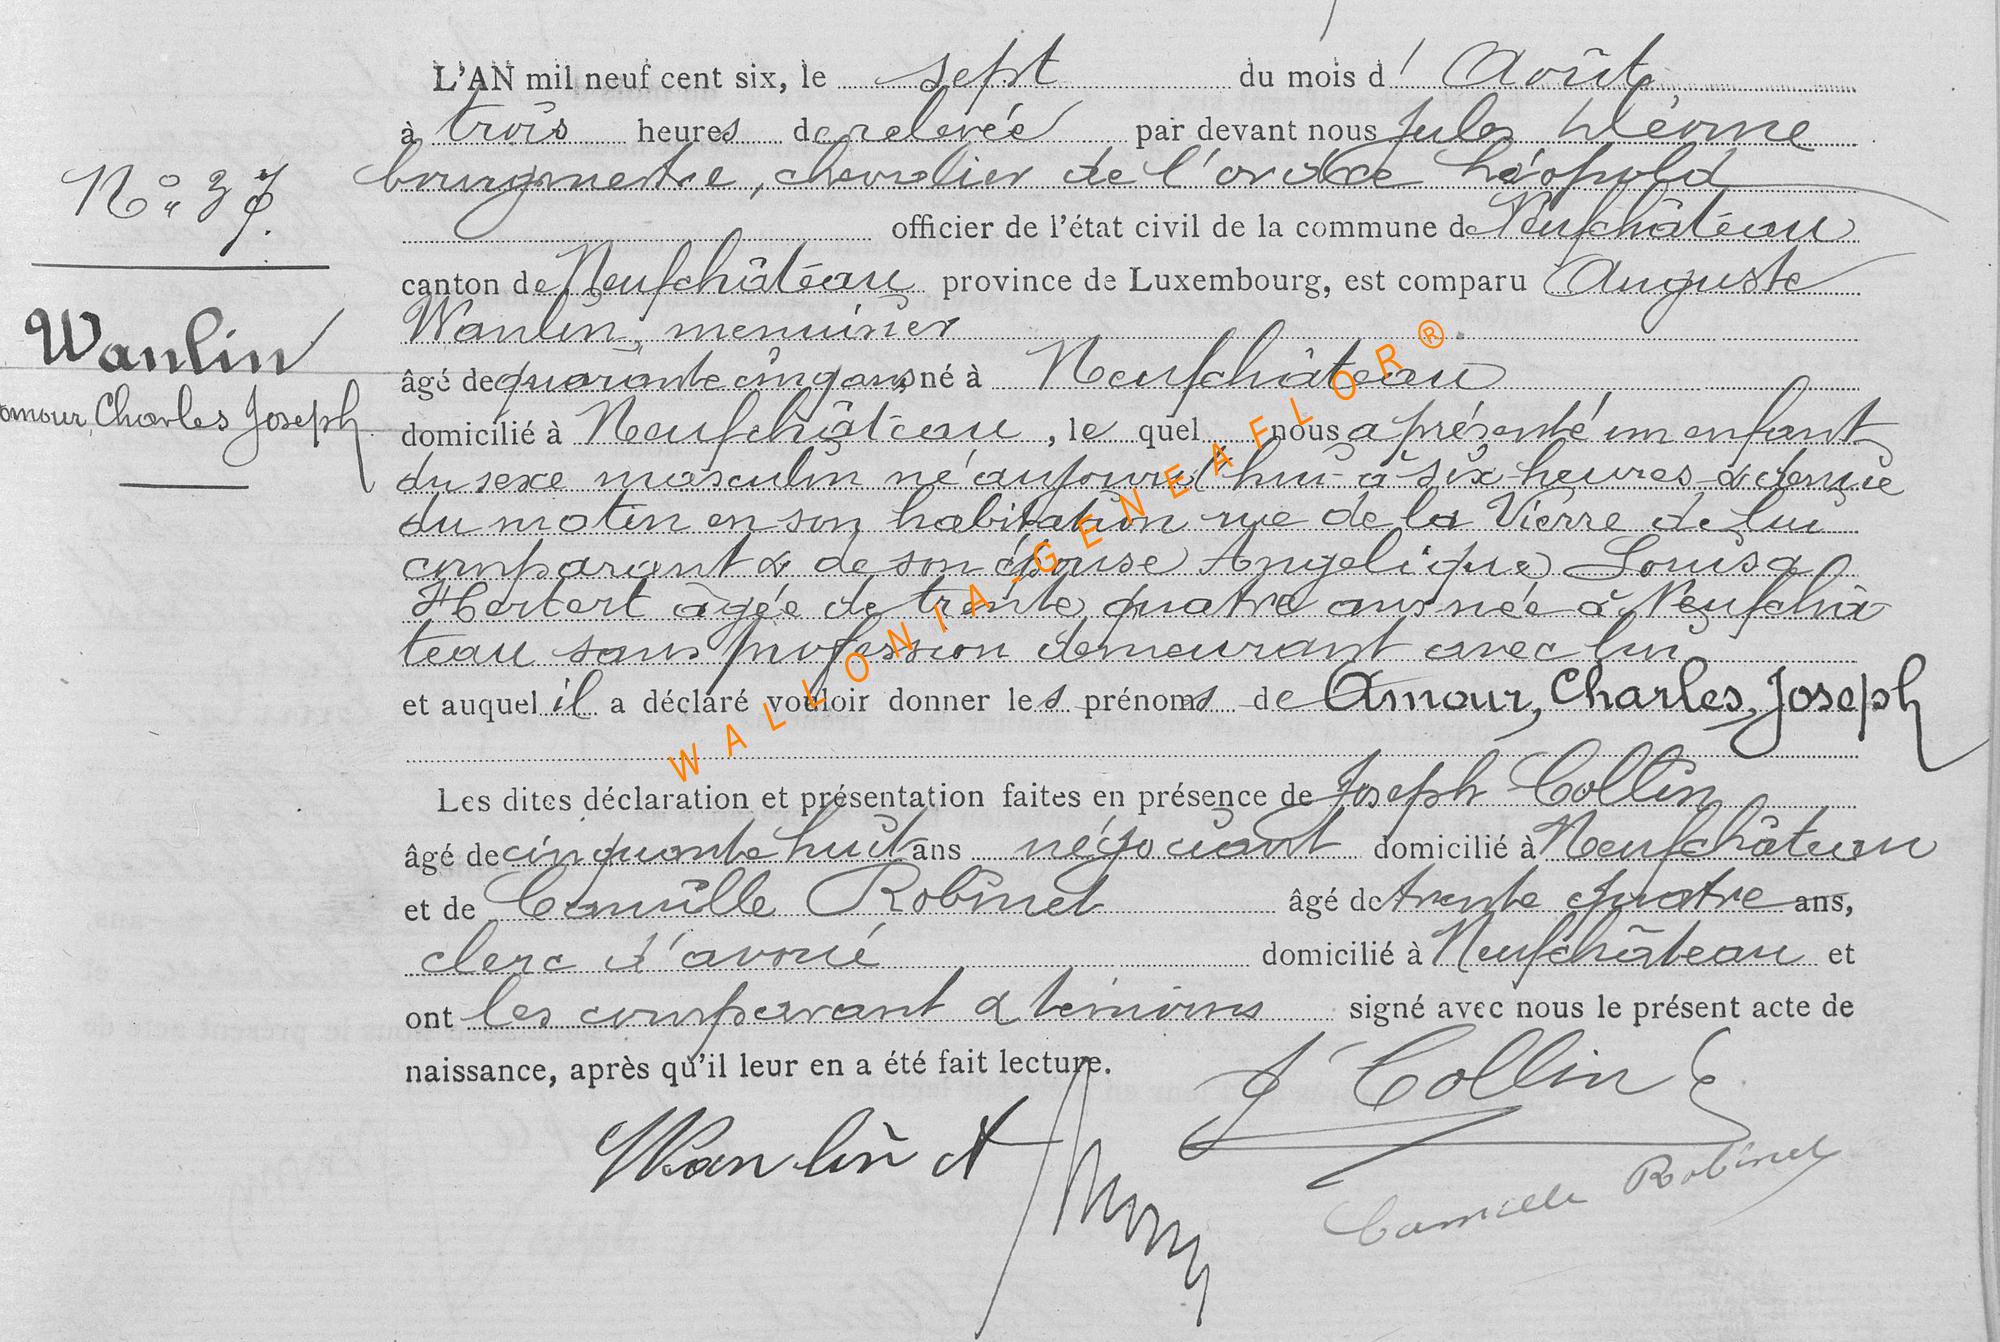 L'AN mil neuf cent six, le sept du mois d' Août
à trois heures de relevée par devant nous Jules
N° 37
bourgmestre, chevalier de l'ordre Léopold
officier de l'état civil de la commune de Neufchâteau
canton de Neufchâteau province de Luxembourg, est comparu Auguste
Wanlin, menuisier
Wanlin
âgé de quarante cinq ans, né à Neufchâteau
Amour, Charles Joseph
domicilié à Neufchâteau, le quel nous a présenté un enfant
du sexe masculin né aujourd'hui à six heures & demie
du matin en son habitation rue de la Vierre de lui
comparant & de son épouse Angelique Louisa
âgée de trente quatre ans née à Neufchâ
teau sans profession demeurant avec lui
et auquel il a déclaré vouloir donner les prénoms de Amour, Charles, Joseph
Les dites déclaration et présentation faites en présence de Joseph Collin
âgé de cinquante huit ans négociant domicilié à Neufchâteau
et de Camille Robinet âgé de trente quatre ans,
clerc d'avoué domicilié à Neufchâteau et
ont les comparant & témoins signé avec nous le présent acte de
naissance, après qu'il leur en a été fait lecture.
J Collin
Wanlin A
Camille Robinet
WALLONIA-GENEAFLOR®